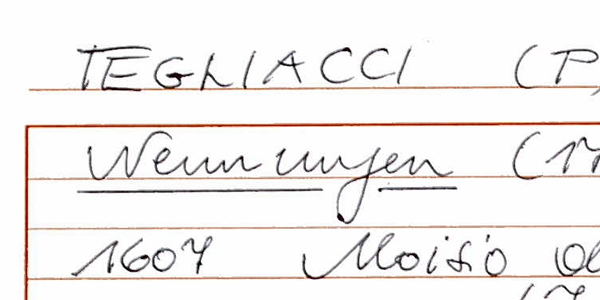 TEGLIACCI (P,
Wennungen (17
1607 Moisio